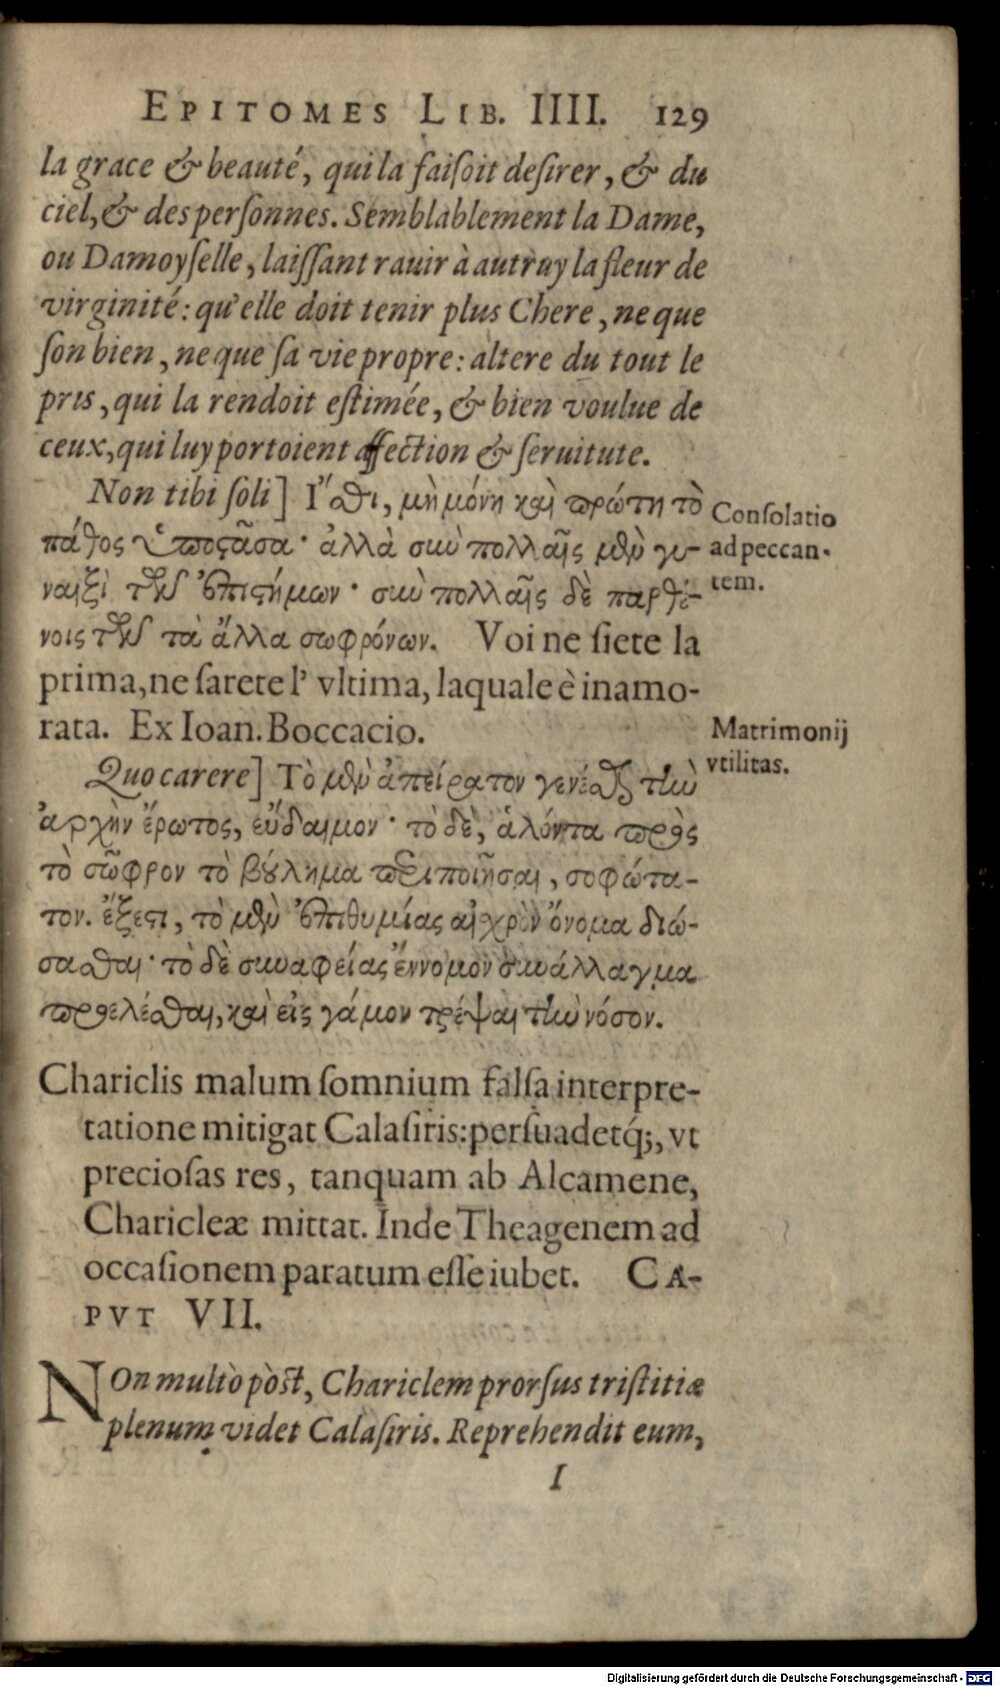 EPITOMES LIB. IIII. 129
la grace & beauté, qui la faiſoit deſirer, & du
ciel, & des perſonnes. Semblablement la Dame,
ou Damoyſelle, laiſſant rauir à autruy la fleur de
virginité: qu'elle doit tenir plus Chere, ne que
ſon bien, ne que ſa vie propre: altere du tout le
pris, qui la rendoit eſtimée, & bien voulue de
ceux, qui luy portoient affection & ſeruitute.
Non tibi ſoli] Ἴσθι, μὴ μόνη καὶ πρώτη τὸ
πάθος ὑποστᾶσα· ἀλλὰ σὺν πολλαῖς μὲν γυ-
ναιξὶ τῶν ἐπισήμων· σὺν πολλαῖς δὲ παρθέ-
νοις τῶν τὰ ἄλλα σωφρόνων. Voi ne ſiete la
prima, ne ſarete l' vltima, laquale è inamo-
rata. Ex Ioan. Boccacio.
Conſolatio
ad peccan-
tem.
Quo carere] Τὸ μὲν ἀπείρατον γενέσθαι τὴν
ἀρχὴν ἔρωτος, εὔδαιμον· τὸ δὲ, ἁλόντα πρὸς
τὸ σῶφρον τὸ βούλημα περιποιῆσαι, σοφώτα-
τον. ἔξεστι, τὸ μὲν ἐπιθυμίας αἰχρὸν ὄνομα διώ-
σασθαι· τὸ δὲ συναφείας ἔννομον συνάλλαγμα
προελέσθαι, καὶ εἰς γάμον τρέψαι τὴν νόσον.
Matrimonij
vtilitas.
Chariclis malum ſomnium falſa interpre-
tatione mitigat Calaſiris: perſuadetq́;, vt
precioſas res, tanquam ab Alcamene,
Charicleæ mittat. Inde Theagenem ad
occaſionem paratum eſſe iubet. CA-
PVT VII.
NOn multò pòst, Chariclem prorſus triſtitiæ
plenum videt Calaſiris. Reprehendit eum,
I
Digitalisierung gefördert durch die Deutsche Forschungsgemeinschaft - DFG